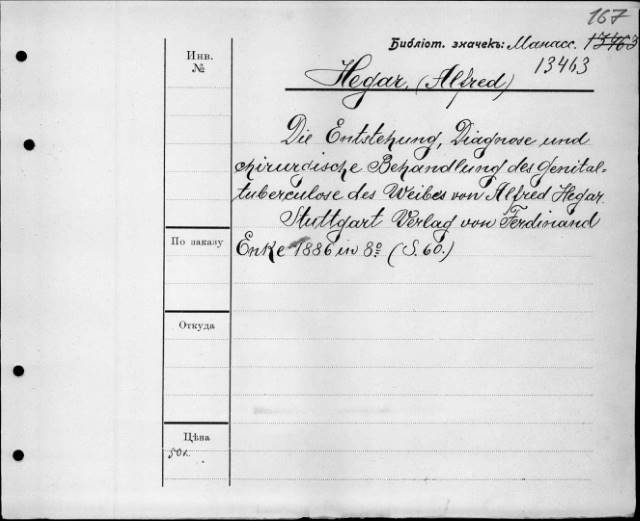 167
Библіот. значекъ: Манасс. 13463
13463
Инв.
№
Hegar, (Alfred)
Die Entstehung, Diagnose und
chirurgische Behandlung des Genital-
tuberculose des Weibes von Alfred Hegar.
Stuttgart Verlag von Ferdinand
Enke 1886 in 8º (S. 60.)
По заказу
Откуда
Цѣна